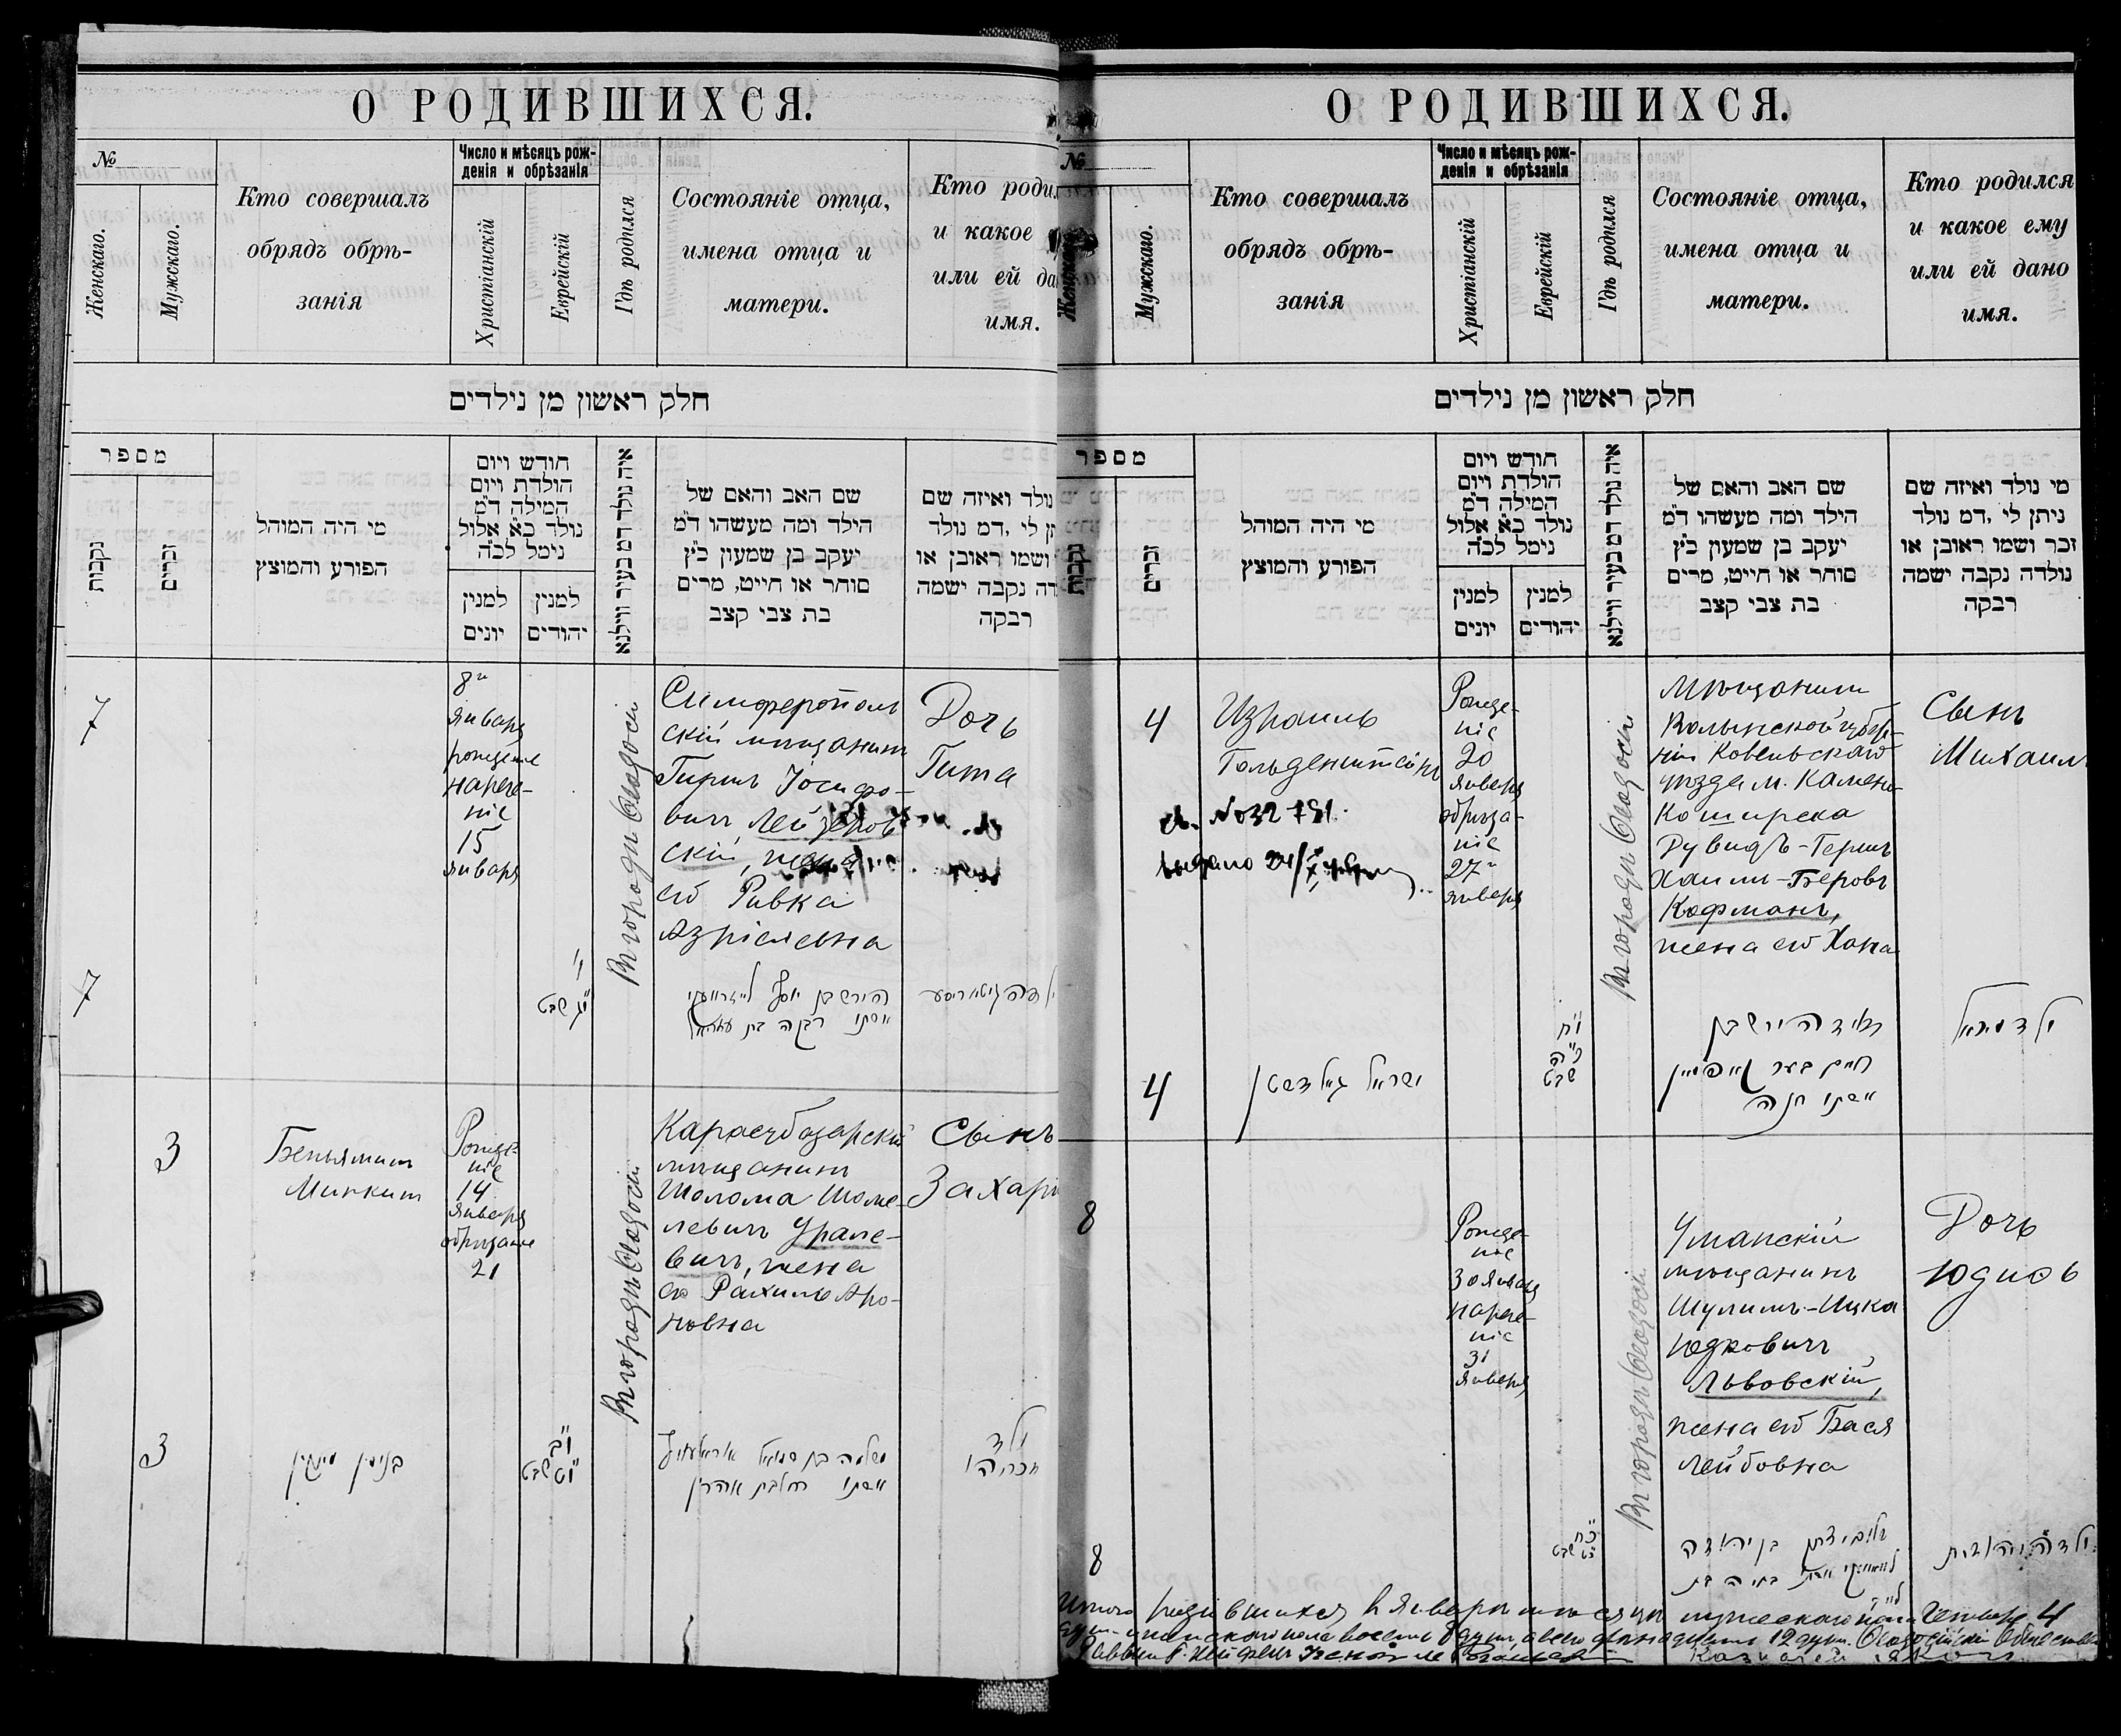 О РОДИВШИХСЯ.
№
Женскаго.
Мужскаго.
Кто совершалъ
обрядъ обрѣ-
занія
Число и мѣсяцъ рож-
денія и обрѣзанія
Христіанскій
Еврейскій
Гдѣ родился
Состояніе отца,
имена отца и
матери.
Кто роди
и какое
или ей да
имя.
חלק ראשון מן נילדים
מספר
נקבות
זכרים
מי היה המוהל
הפורע והמוצץ
חודש ויום
הולדת ויום
המילה ד״מ
נולד כ״א אלול
נימל לכ״ה
למנין
יונים
למנין
יהודים
איה נולד דמ בעיר ווילנא
שם האב והאם של
הילד ומה מעשהו ד״מ
יעקב בן שמעון כ״ץ
סוחר או חייט, מרים
בת צבי קצב
נולד ואיזה שם
תן לי, דמ נולד
ושמו ראובן או
דה נקבה ישמה
רבקה
7
8го
января
рождение
нарече-
ніе
15
января
Въ городѣ Ѳеодосіи
Симферополь
скій мѣщанинъ
Гиршъ Іосифо-
вичъ Лейзеров
скій, жена
его Ривка
Азріелевна
Дочь
Гита
7
י״ג שבט
הירש בן יוסף
אשתו רבקה בת עזריאל
3
Беньяминъ
Минкин
Рожде-
ніе
14
января
обрѣзаніе
21
Въ городѣ Ѳеодосіи
Карасубазарскій
мѣщанинъ
Шолома Шоме-
левичъ Урале-
вичъ, жена
его Рахиль Аро-
новна
Сынъ
Захарі
3
בנימין מינקין
י״ב
י״ט שבט
אשתו רחל בת אהרן
ילד
זכריהו
О РОДИВШИХСЯ.
№
Женскаго
Мужскаго.
Кто совершалъ
обрядъ обрѣ-
занія
Число и мѣсяцъ рож-
денія и обрѣзанія
Христіанскій
Еврейскій
Гдѣ родился
Состояніе отца,
имена отца и
матери.
Кто родился
и какое ему
или ей дано
имя.
חלק ראשון מן נילדים
מספר
נקבות
זכרים
מי היה המוהל
הפורע והמוצץ
חודש ויום
הולדת ויום
המילה ד״מ
נולד כ״א אלול
נימל לכ״ה
למנין
יונים
למנין
יהודים
איה נולד דמ בעיר ווילנא
שם האב והאם של
הילד ומה מעשהו ד״מ
יעקב בן שמעון כ״ץ
סוחר או חייט, מרים
בת צבי קצב
מי נולד ואיזה שם
ניתן לי, דמ נולד
זכר ושמו ראובן או
נולדה נקבה ישמה
רבקה
4
Израиль
Гольденштейнъ
№ 032 751.
выдано 24/
Рожде-
ніе
20
января
обрѣза-
ніе
27го
января
Въ городѣ Ѳеодосіи
Мѣщанинъ
Волынской губер-
ніи Ковельскаго
уѣзда м. Камень-
Коширска
Рувидъ-Гершъ
Хаимъ-Беровъ
Кофманъ,
жена его Хана
Сынъ
Михаилъ
4
ישראל גאלדשטיין
י״ח
כ״ה
שבט
הירש בן
חיים בער קופמאן
אשתו חנה
ילד מיכאל
8
Рожде-
ніе
30 января
нарече-
ніе
31
января
Въ городѣ Ѳеодосіи
Уманскій
мѣщанинъ
Шулимъ-Ицка
Юдковичъ
Львовскій,
жена его Бася
Лейбовна
Дочь
Юдиѳь
8
כ״ח
שבט
בן יהודה
ילדה יהודית
Итого родившихся въ январѣ мѣсяцѣ мужескаго пола четыре 4
душ. женскаго пола восемь 8 душ, а всего двѣнадцать 12 душ. Ѳеодосійскій Обществен
Раввинъ
Казначей